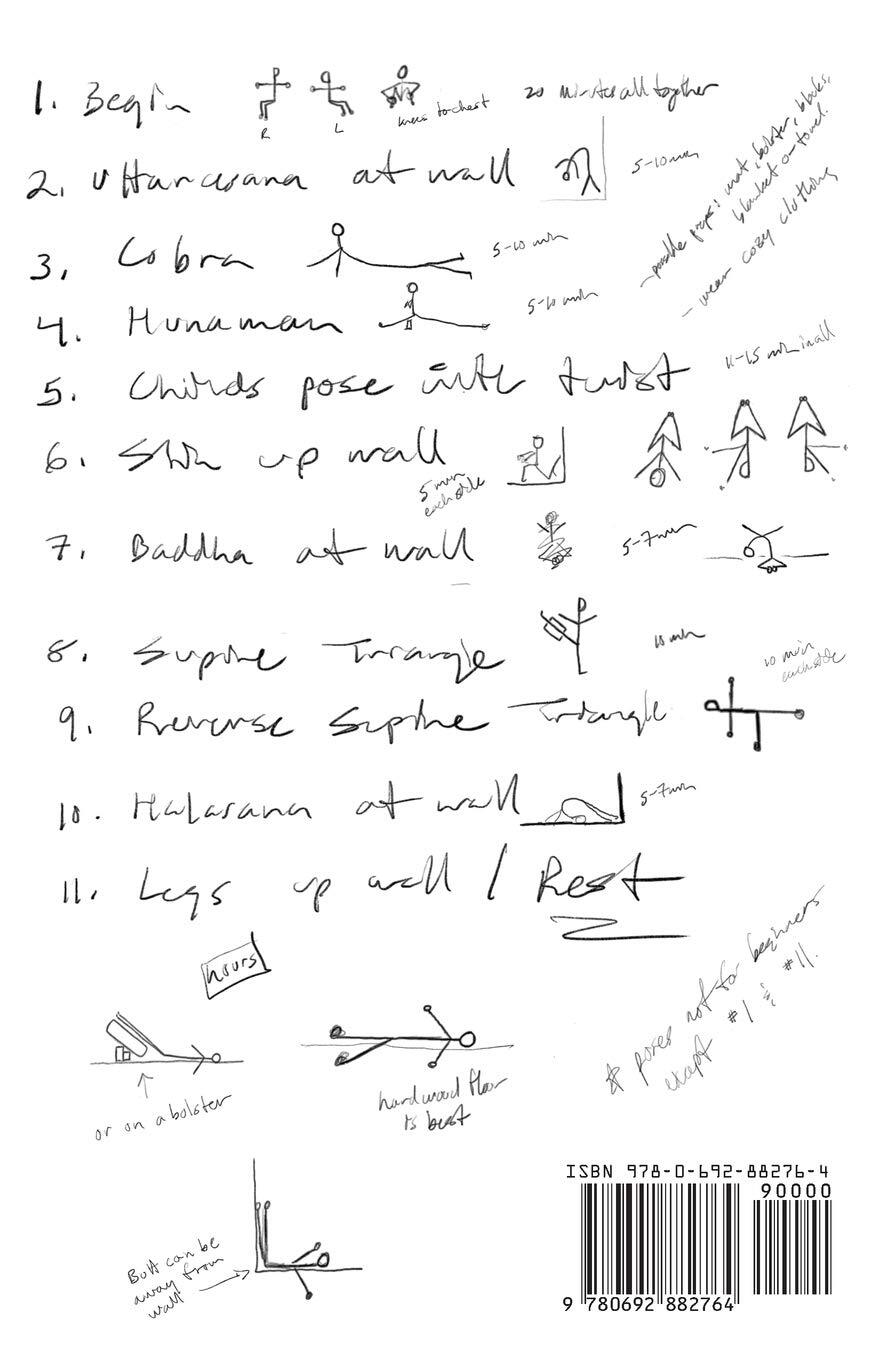 1. Begin
R
L
knees to chest
20 minutes all together
- possible props: mat, bolster, blocks,
blanket or towel.
- wear cozy clothing
2. Uttanasana at wall
5-10 min
3. Cobra
5-10 min
4. Hunaman
5-10 min
5. Childs pose with twist
min in all
6. Shin up wall
5 min
each side
7. Baddha at wall
5-7 min
8. Supine Triangle
10 min
9. Reverse Supine Triangle
10 min
each side
10. Halasana at wall
5-7 min
11. Legs up wall / Rest
hours
* poses not for beginners
except #1 & #11.
or on a bolster
hardwood floor
is best
Butt can be
away from
wall
ISBN 978-0-692-88276-4
90000
9 780692 882764